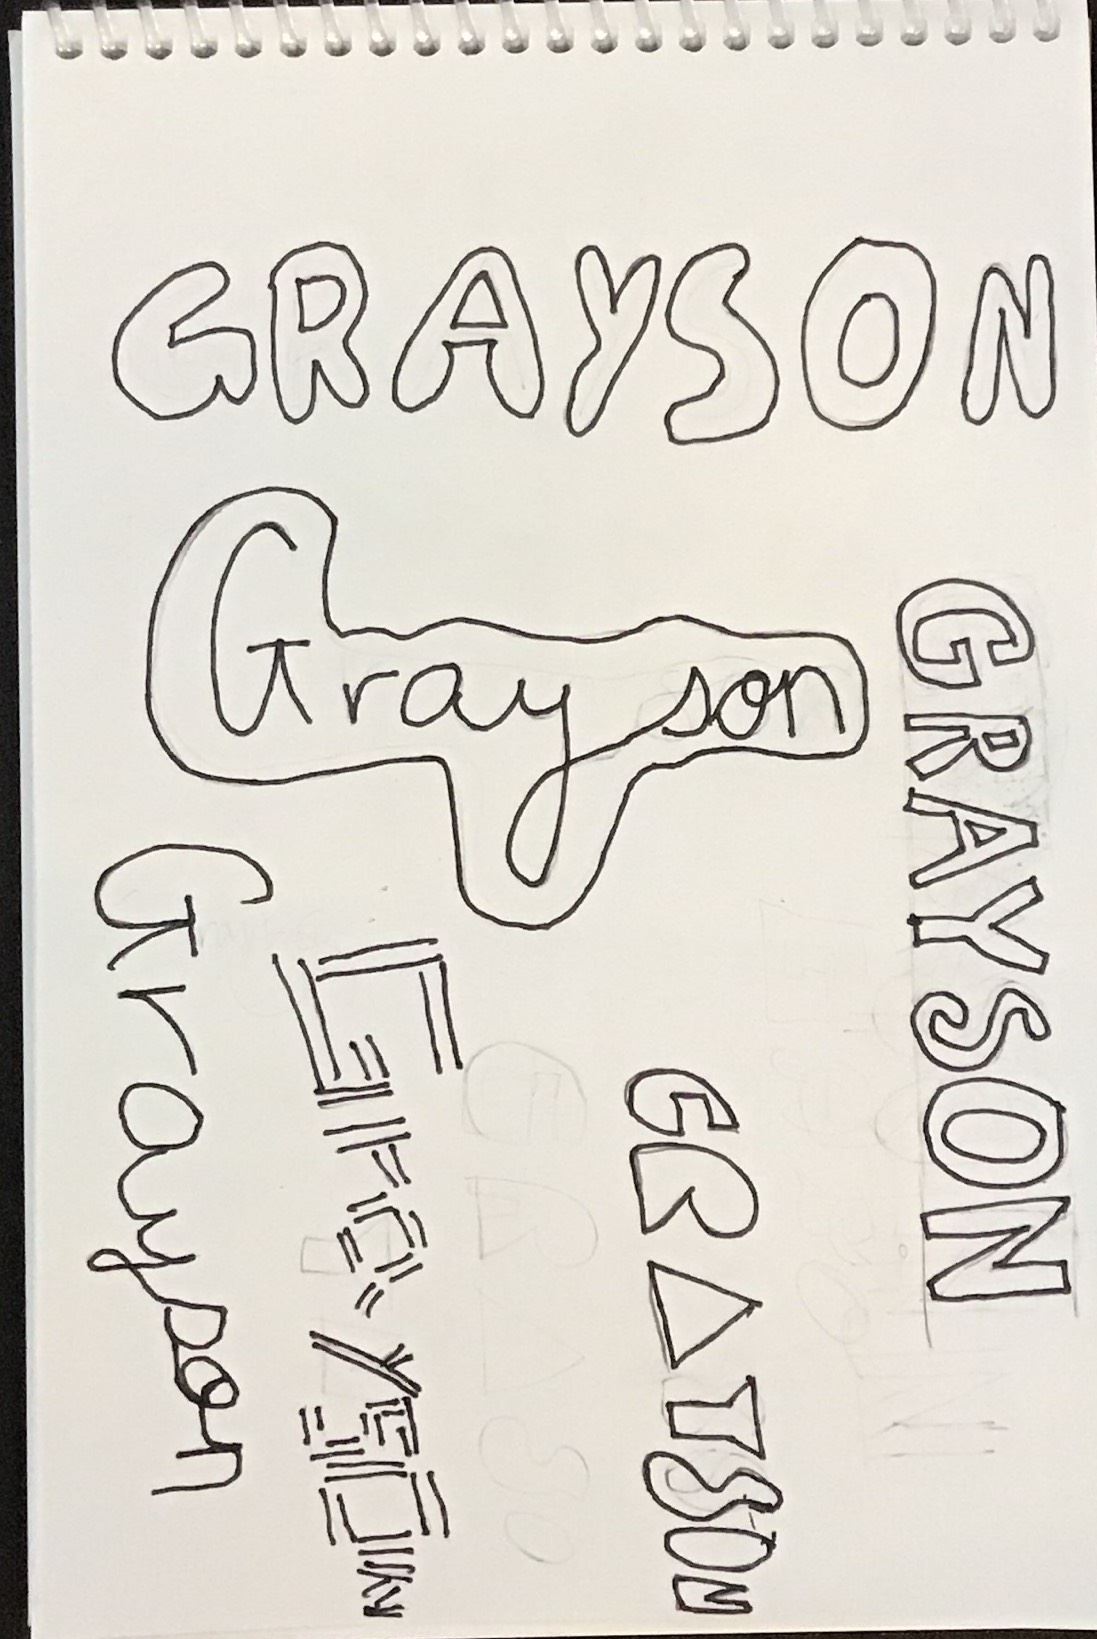 GRAYSON
Grayson
GRAYSON
Grayson
GraYSON
GRAYSON